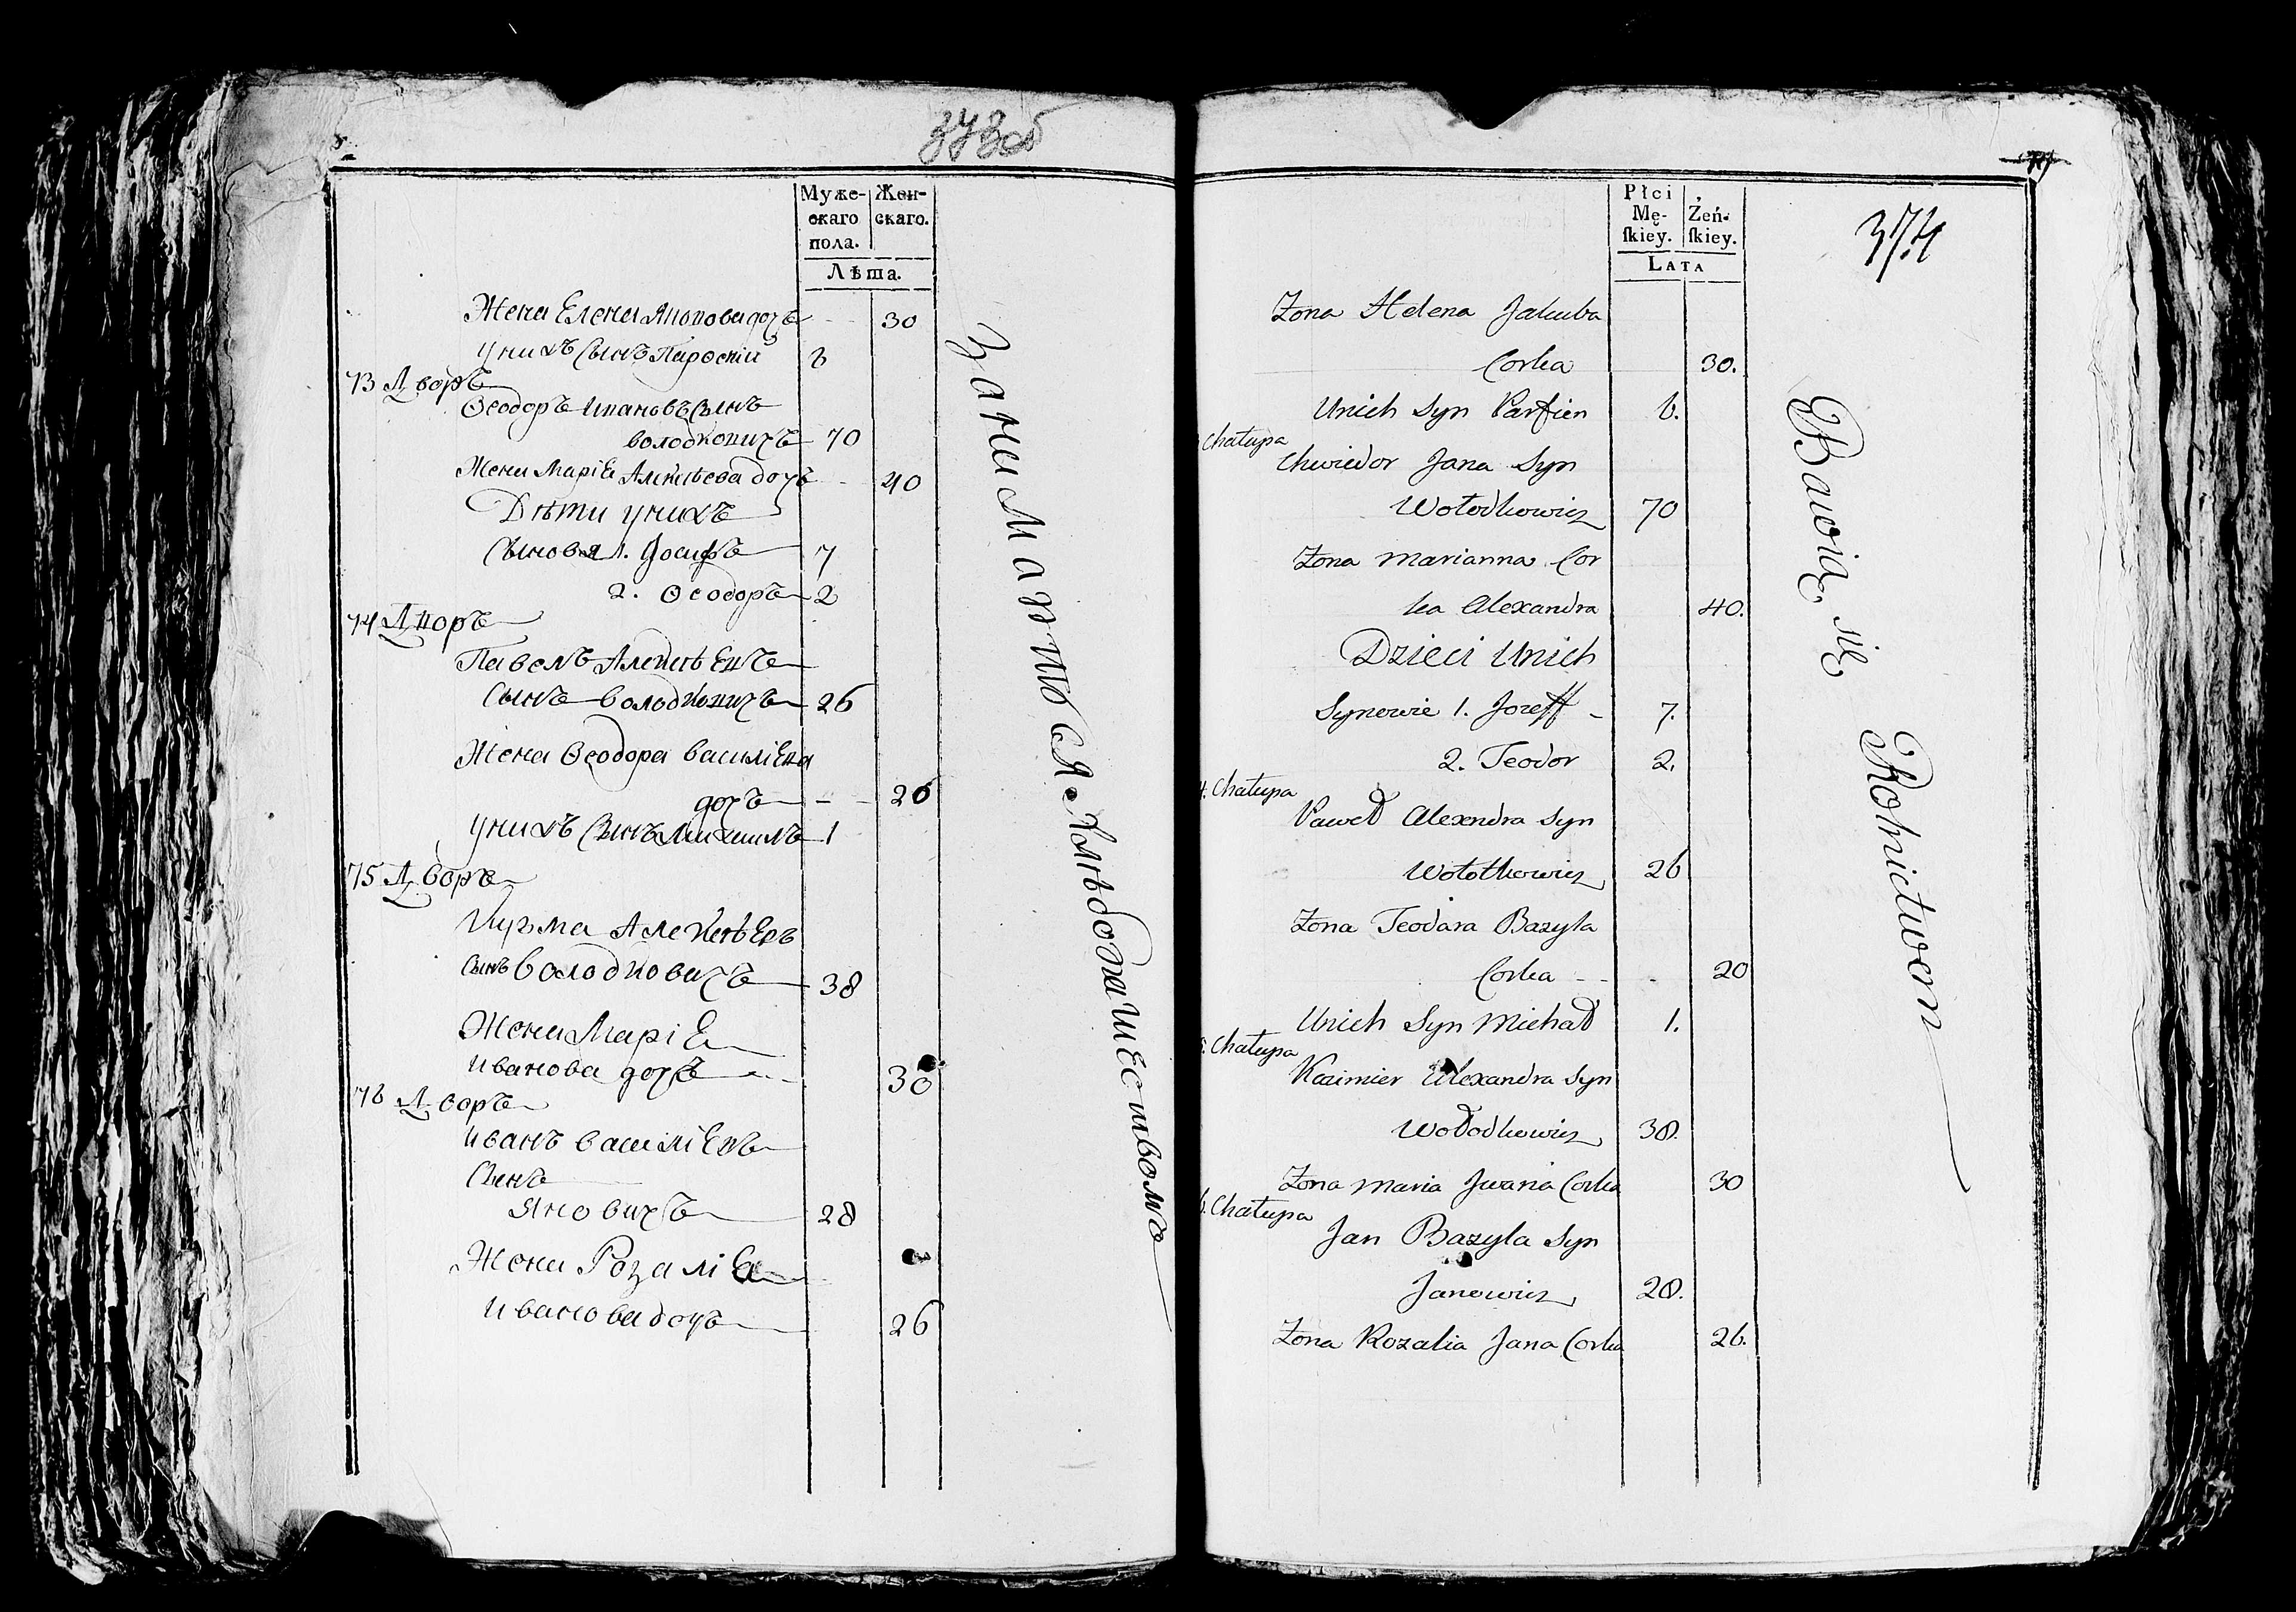 373об
Муже-
скаго
пола.
Жен-
скаго.
Лѣта.
Жена Елена Якопова дочъ 30
у нихъ Сынъ Парфенiи 6
73 Дворъ
Ѳеодоръ Ивановъ Сынъ
володковичъ 70
Жена Марiя Алексѣева дочъ 40
Дѣти у нихъ
Сыновья 1. Иосифъ 7
2. Ѳеодоръ 2
74 Дворъ
Павелъ Алексѣевъ
Сынъ володковичъ 26
Жена Ѳеодора василiева
дочъ 20
у нихъ Сынъ Михаилъ 1
75 Дворъ
Кузма Алексѣевъ
Сынъ володковичъ 38
Жена Марiя
Иванова дочъ 30
76 Дворъ
Иванъ василiевъ
Сынъ
Яновичъ 28
Жена Розалiя
Иванова дочъ 26
Занимаются хлѣбопашествомъ
374
Płci
Mę-
skiey.
Żeń-
skiey.
LATA
Zona Helena Jakuba
Corka 30.
Unich Syn Parfien 6.
Chałupa
Chwiedor Jana Syn
Wołodkowicz 70
Zona Marianna Cor
ka Alexandra 40.
Dzieci Unich
Synowie 1. Jozeff 7.
2. Teodor 2.
4. Chałupa
Paweł Alexndra Syn
Wołotkowicz 26
Zona Teodara Bazyla
Corka 20
Unich Syn Michał 1.
5. Chałupa
Kazimier Alexandra Syn
Wołodkowicz 38.
Zona Maria Jwana Corka 30
6. Chałupa
Jan Bazyla Syn
Janowicz 28.
Zona Rozalia Jana Corka 26.
Bawią się Rolnictwem